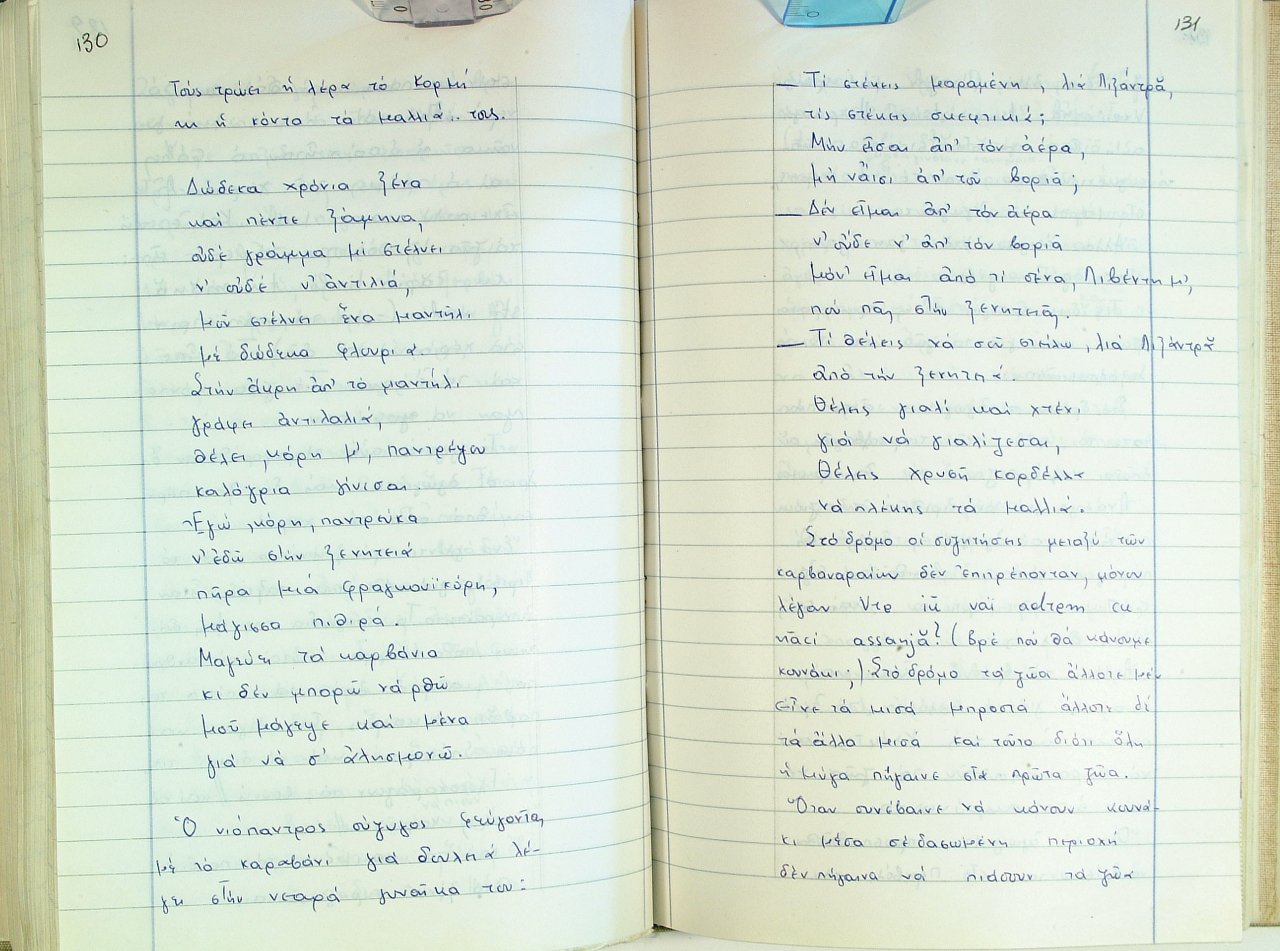 130
Τούς τρώει ἡ λέρα τό κορμί
κι ἡ κόντα τά μαλλιά.. τους.
Δώδεκα χρόνια ξένα
καί πέντε ξάμηνα,
οὐδέ γράμμα μί στέλνει
ν' οὐδέ ν' ἀντιλιά,
μοῦ στέλνει ἕνα μαντήλι
μέ δώδεκα φλουριά.
Στήν ἄκρη ἀπ' τό μαντήλι
γράφει ἀντιλαλιά,
θέλει, κόρη μ', παντρέψου
καλόγρια γίνεσαι.
Ἐγώ, κόρη, παντρεύκα
ν' ἐδῶ στήν ξενητειά
πῆρα μιά φραγκουϊκόρη,
μάγισσα πιθιρά.
Μαγεύει τά καρβάνια
κι δέν μπορῶ νά ρθῶ
μοῦ μάγεψε καί μένα
γιά νά σ' ἀλησμονῶ.
Ὁ νιόπαντρος σύζυγος φεύγοντας
μέ τό καραβάνι γιά δουλειά λέ-
γει στήν νεαρά γυναῖκα του:
131
— Τί στέκεις μαραμένη, λιά Λιζάντρᾰ,
τίς στέκης σκεφτικιά;
Μήν εἶσαι ἀπ' τόν ἀέρα,
μή νἄισι ἀπ' τοῦ βοριᾶ;
— Δέν εἶμαι ἀπ' τόν ἀέρα
ν' οὔδε ν' ἀπ' τόν βοριᾶ
μόν' εἶμαι ἀπό τί σένα, Λιβέντη μ',
πού πᾷς στήν ξενητειᾶ.
— Τί θέλεις νά σοῦ στείλω, λιά Λιζάντρᾰ
ἀπό τήν ξενητειά.
Θέλης γιαλί καί χτένι
γιά νά γιαλίζεσαι,
Θέλης χρυσῆ κορδέλλα
νά πλέκης τά μαλλιά.
Στό δρόμο οἱ συζητήσης μεταξύ τῶν
καρβαναραίων δέν ἐπιτρέπονταν, μόνον
λέγαν Vrp iŭ vai adrem cu
nāci assanjā? (Βρέ πού θά κάνουμε
κουνάκι;) Στό δρόμο τά ζῶα ἄλλοτε μέ-
εῖνε τά μισά μπροστά ἄλλοτε δέ
τά ἄλλα μισά καί τοῦτο διότι ὅλη
ἡ μύγα πήγαινε στά πρῶτα ζῶα.
Ὅταν συνέβαινε νά κάνουν κουνά-
κι μέσα σέ δασωμένη περιοχή
δέν πήγαινα νά πιάσουν τά ζῶα